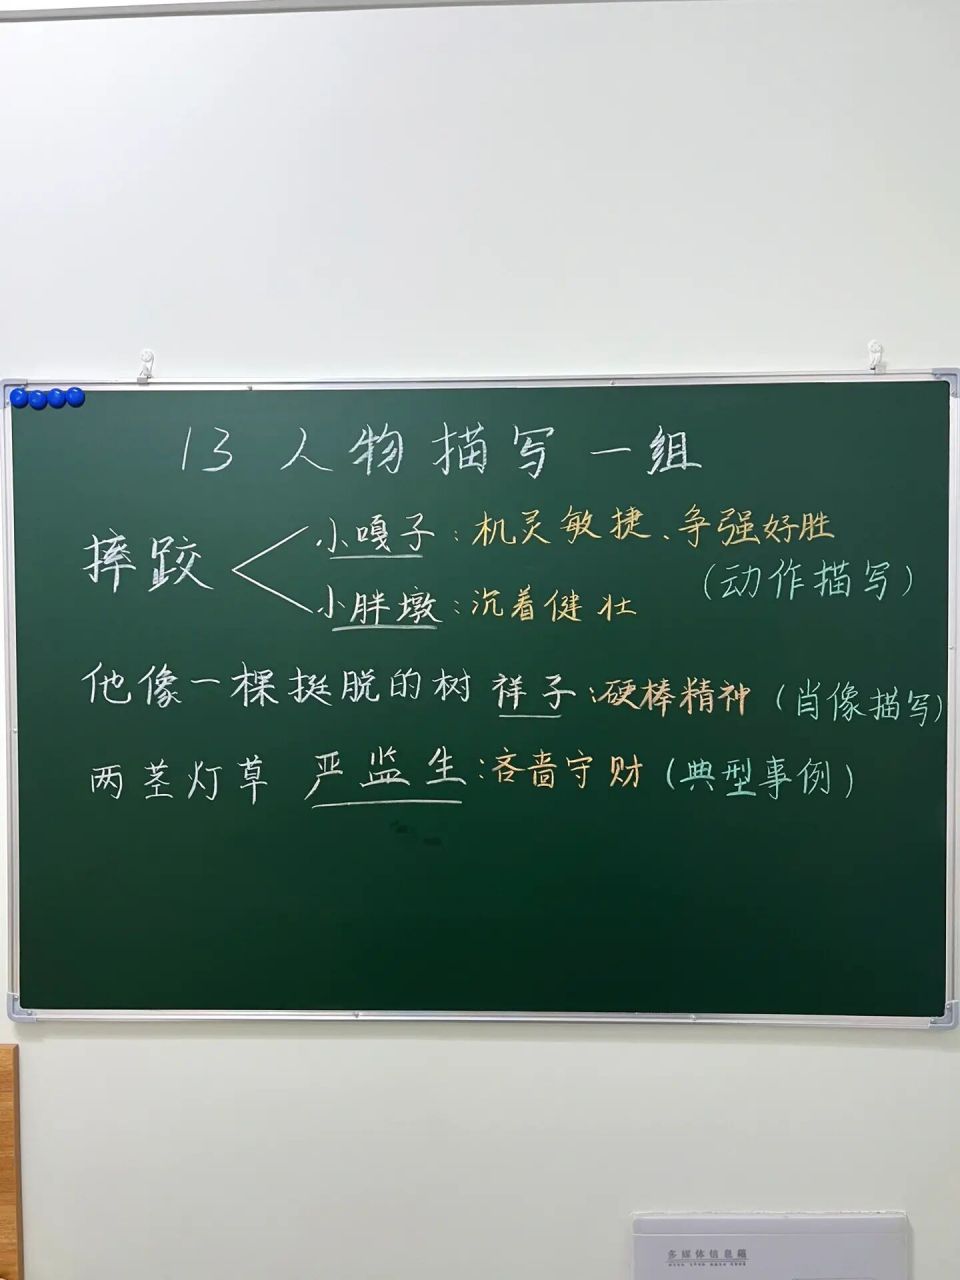 13 人物描写一组
摔跤
小嘎子：机灵敏捷、争强好胜
小胖墩：沉着健壮
（动作描写）
他像一棵挺脱的树 祥子：硬棒精神（肖像描写）
两茎灯草 严监生：吝啬守财（典型事例）
多媒体信息箱